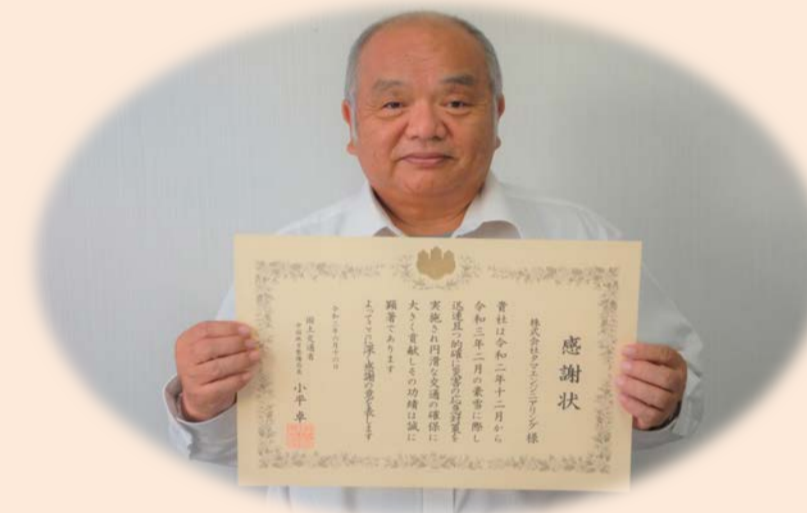 感謝状
株式会社タマエンジニアリング 様
貴社は令和二年十二月から
令和三年二月の豪雪に際し
迅速且つ的確に災害の応急対策を
実施され円滑な交通の確保に
大きく貢献しその功績は誠に
顕著であります
よってここに深く感謝の意を表します
令和三年六月十六日
国土交通省
小平 卓